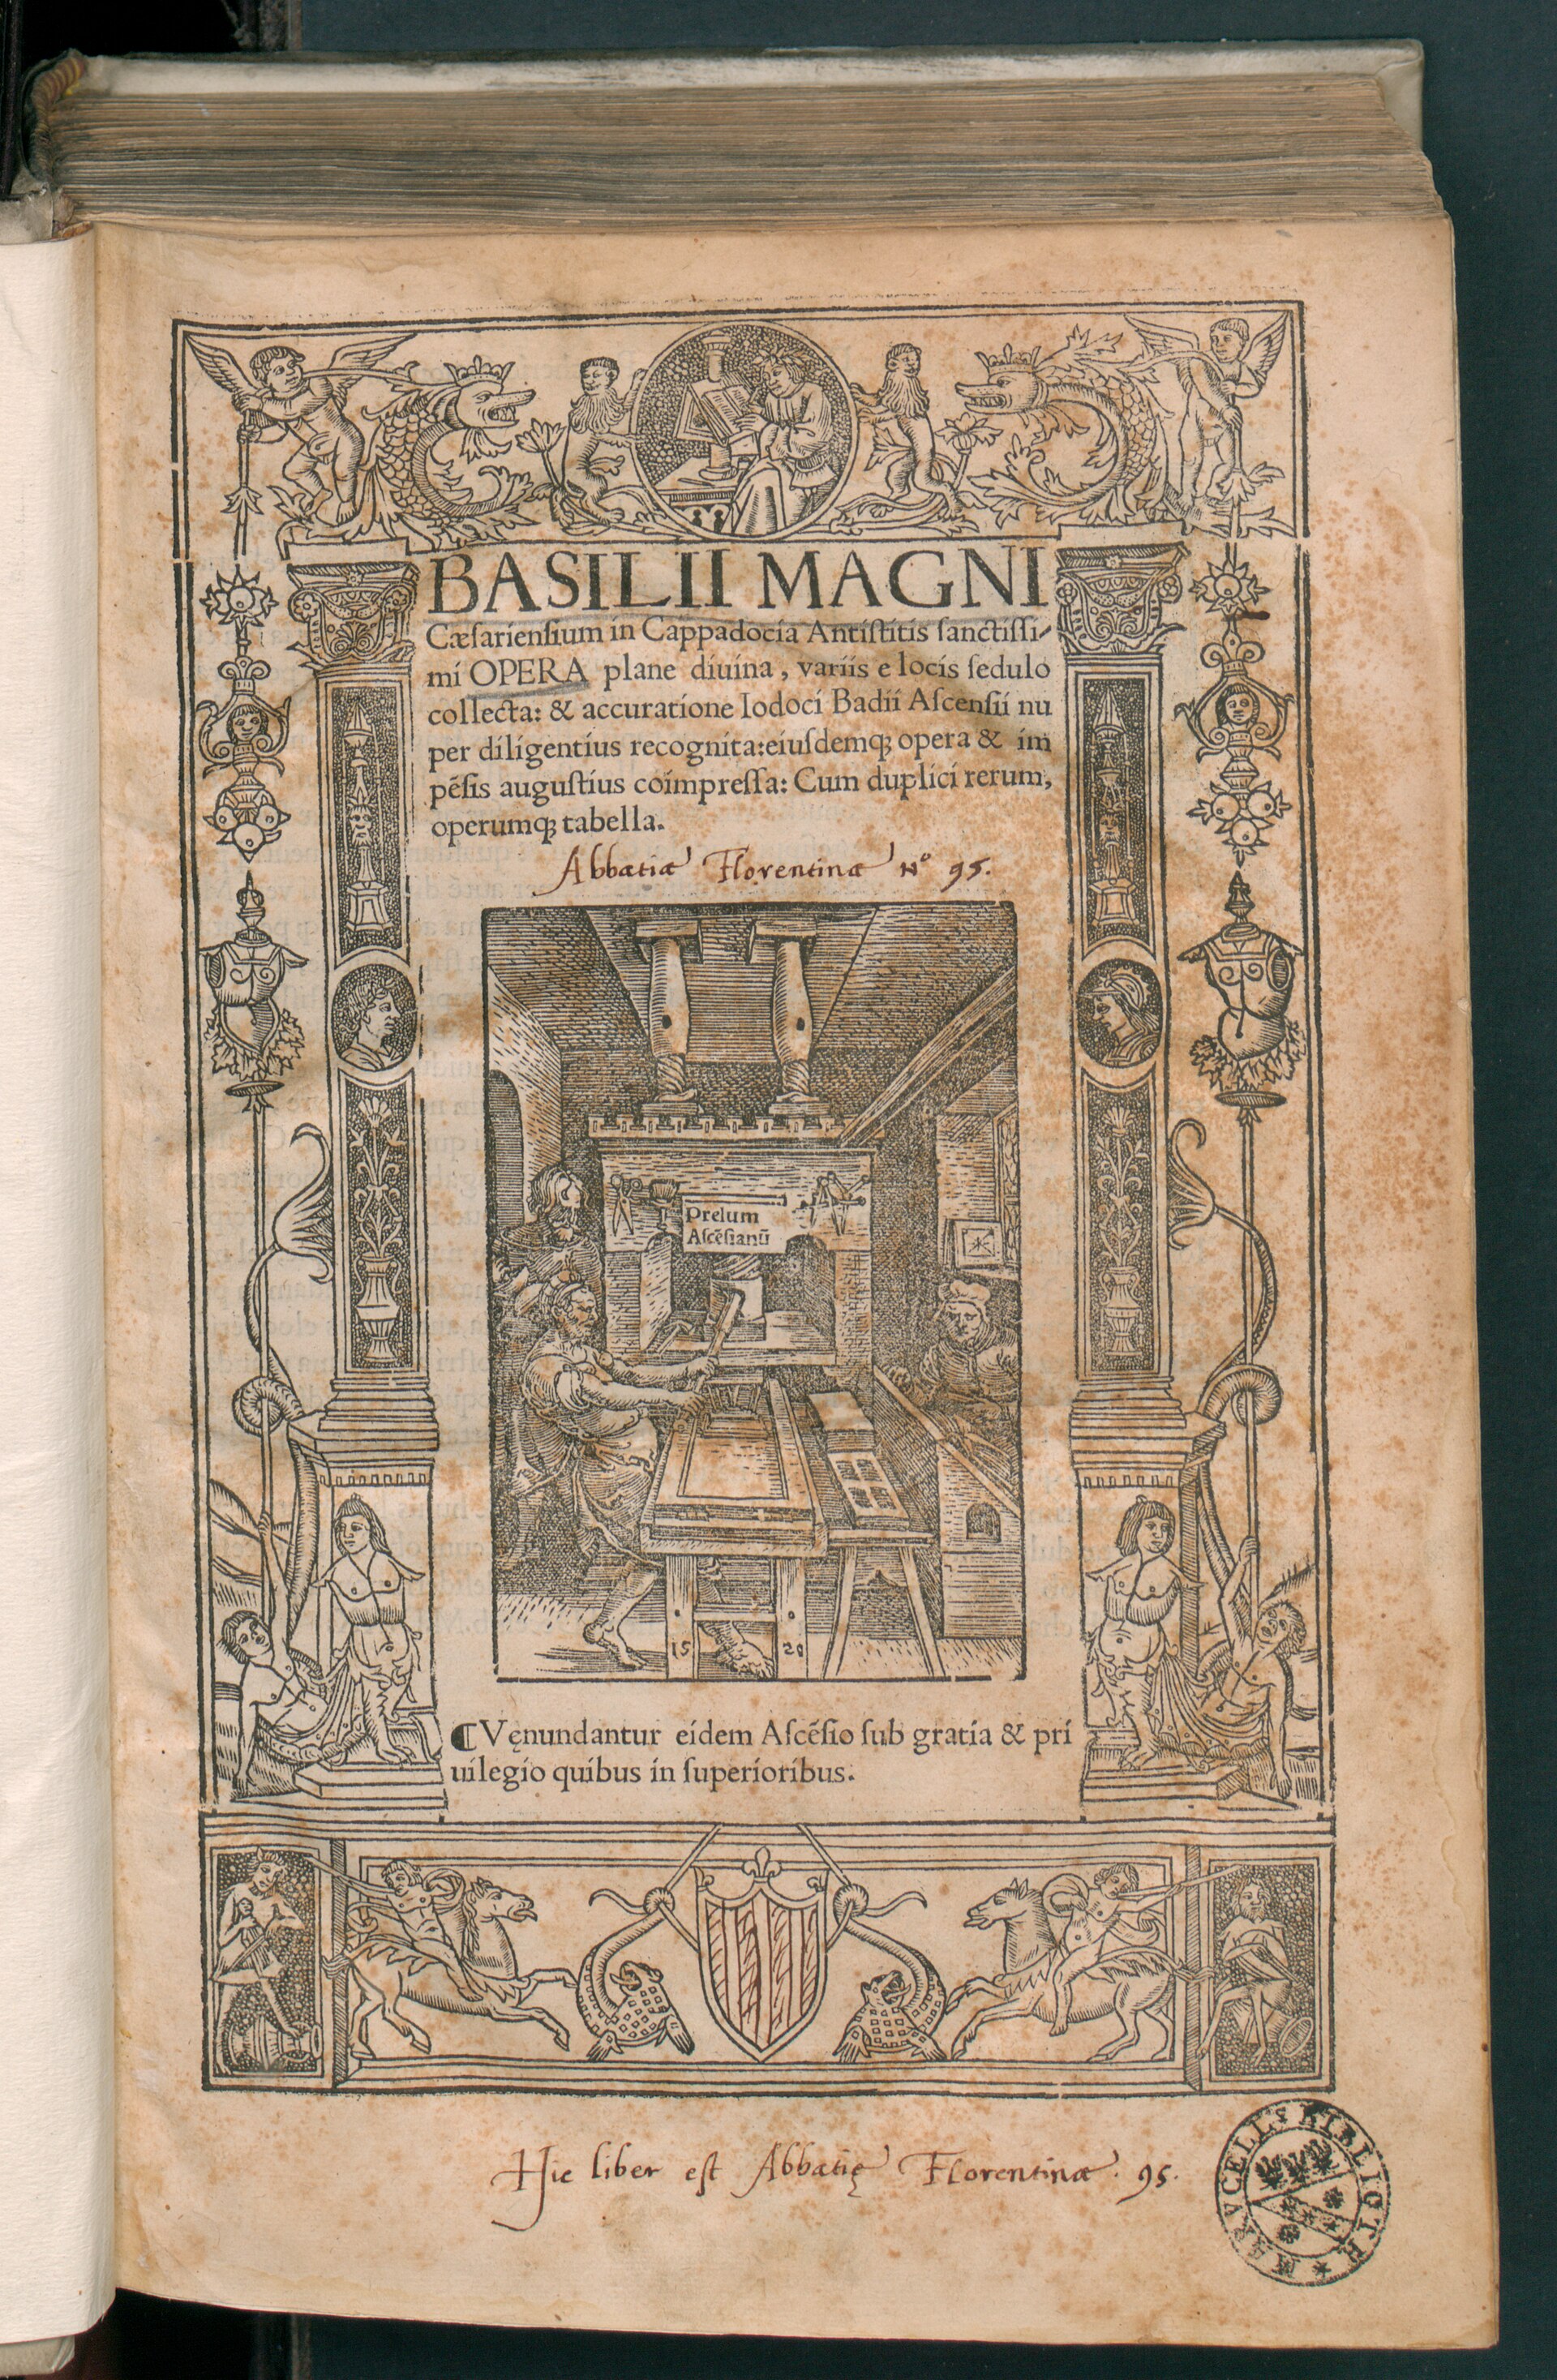 BASILII MAGNI
Cæſarienſium in Cappadocia Antiſtitis ſanctiſſi-
mi OPERA plane diuina, variis e locis ſedulo
collecta: & accuratione Iodoci Badii Aſcenſii nu
per diligentius recognita:eiuſdemq; opera & im
pēſis auguſtius coimpreſſa: Cum duplici rerum,
operumq; tabella.
Abbatiæ Florentinæ Nº 95.
Prelum
Aſcēſianū
15 20
¶Vęnundantur eidem Aſcēſio ſub gratia & pri
uilegio quibus in ſuperioribus.
Hic liber est Abbatię Florentinæ. 95.
MARVCELL. BIBLIOTH